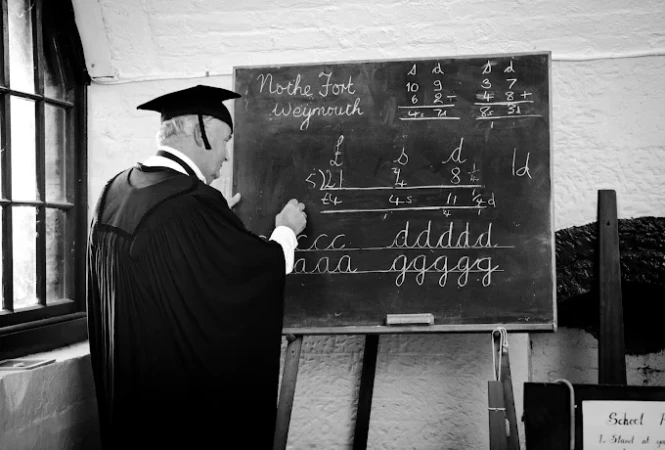 Nothe Fort
Weymouth
s d
10 9
6 2
s d
3 7
4 8 +
8s 3d
1
£ s d
5)21 4 8
£4 4s 11 d
1d
ccc ddddd
aaa ggggg
School
1. Stand at